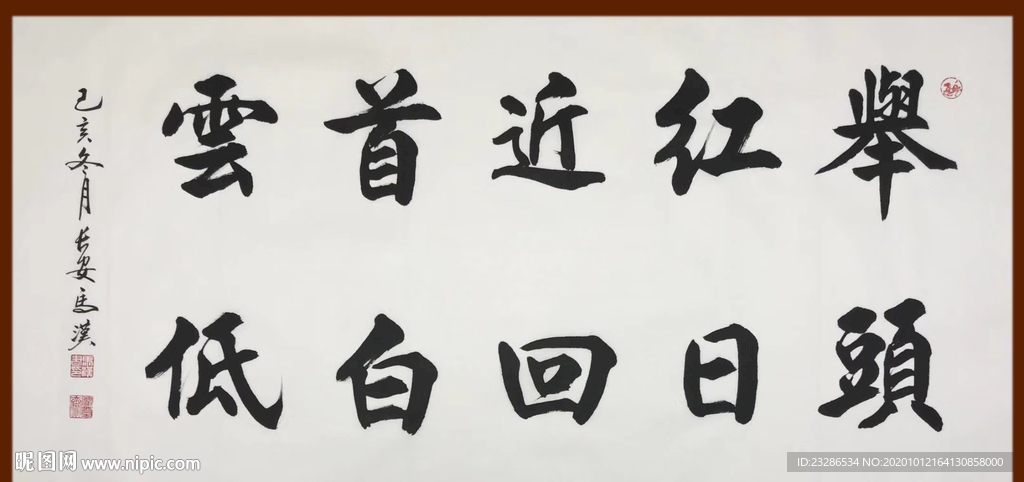 舉頭
紅日
近回
首白
雲低
己亥冬月長安馬漢
昵图网 www.nipic.com
ID:23286534 NO:20201012164130858000